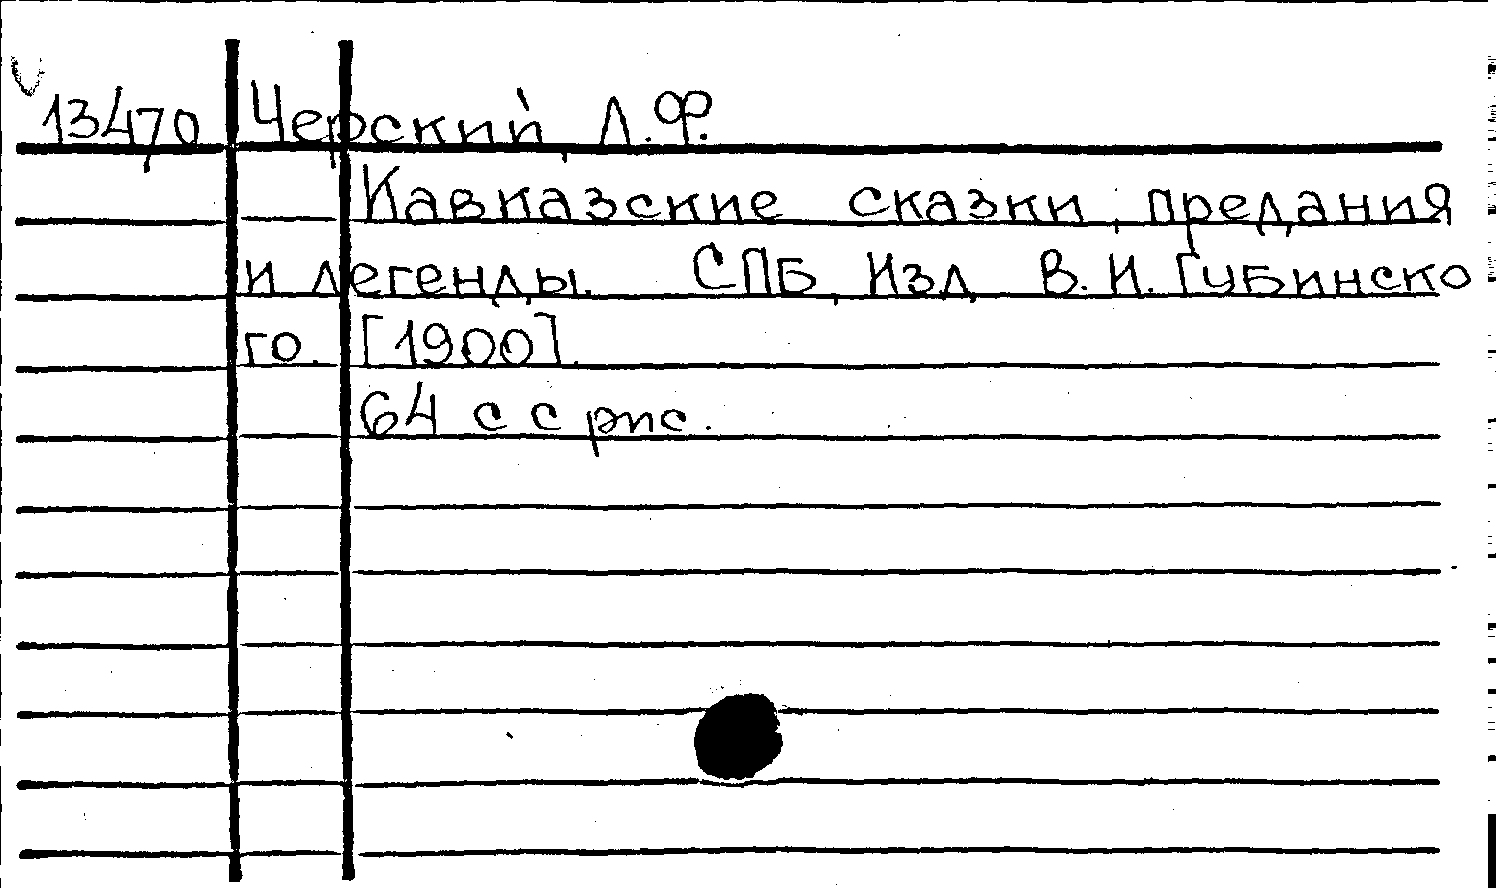 13470 Черский, Л.Ф.
Кавказские сказки, предания
и легенды. СПБ, Изд. В. И. Губинско
го. [1900].
64 с с рис.